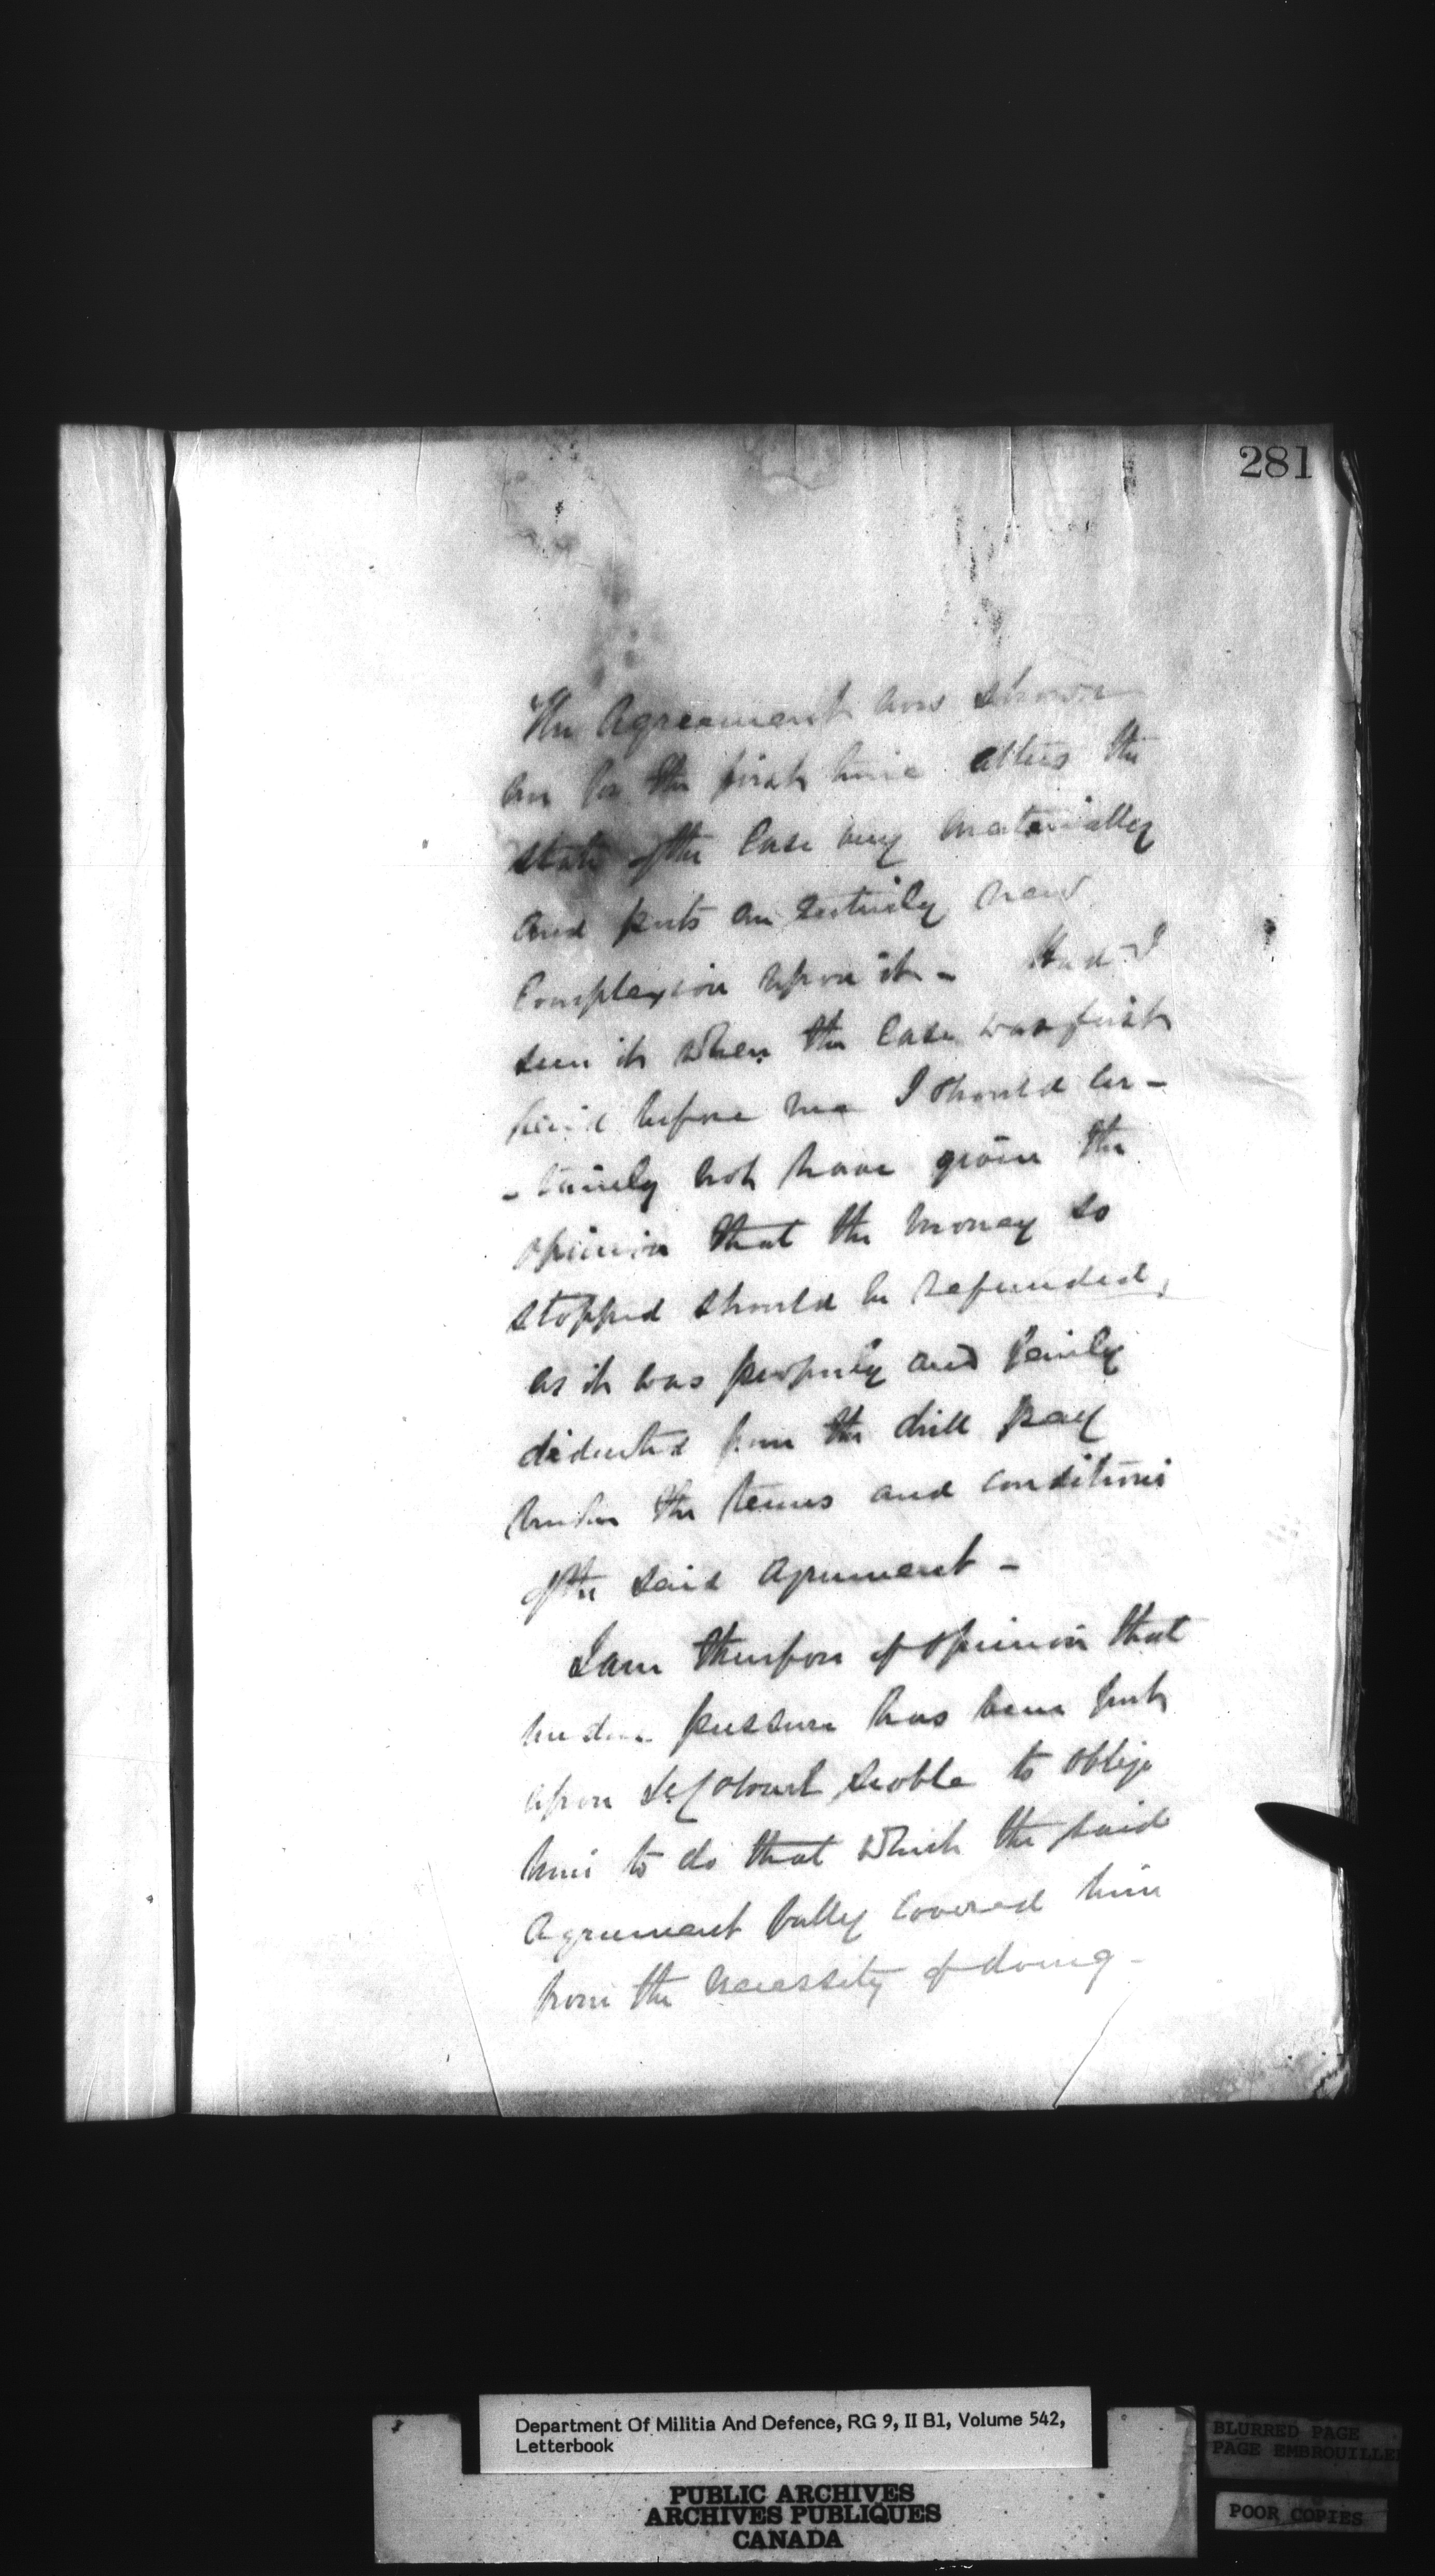 281
The Agreement now shown
me for the first time alters the
state of the Case very materially
and puts an entirely new
Complexion upon it - Had I
seen it when the Case was first
before me I should cer-
-tainly not have given the
opinion that the money so
stopped should be refunded,
as it was properly and fairly
deducted from the drill pay
under the terms and conditions
of the said agreement -
I am therefore of opinion that
undue pressure has been put
upon Lt. Colonel to oblige
him to do that which the said
Agreement fully covered him
from the necessity of doing -
Department Of Militia And Defence, RG 9, II B1, Volume 542,
Letterbook
PUBLIC ARCHIVES
ARCHIVES PUBLIQUES
CANADA
BLURRED PAGE
PAGE EMBROUILLEE
POOR COPIES